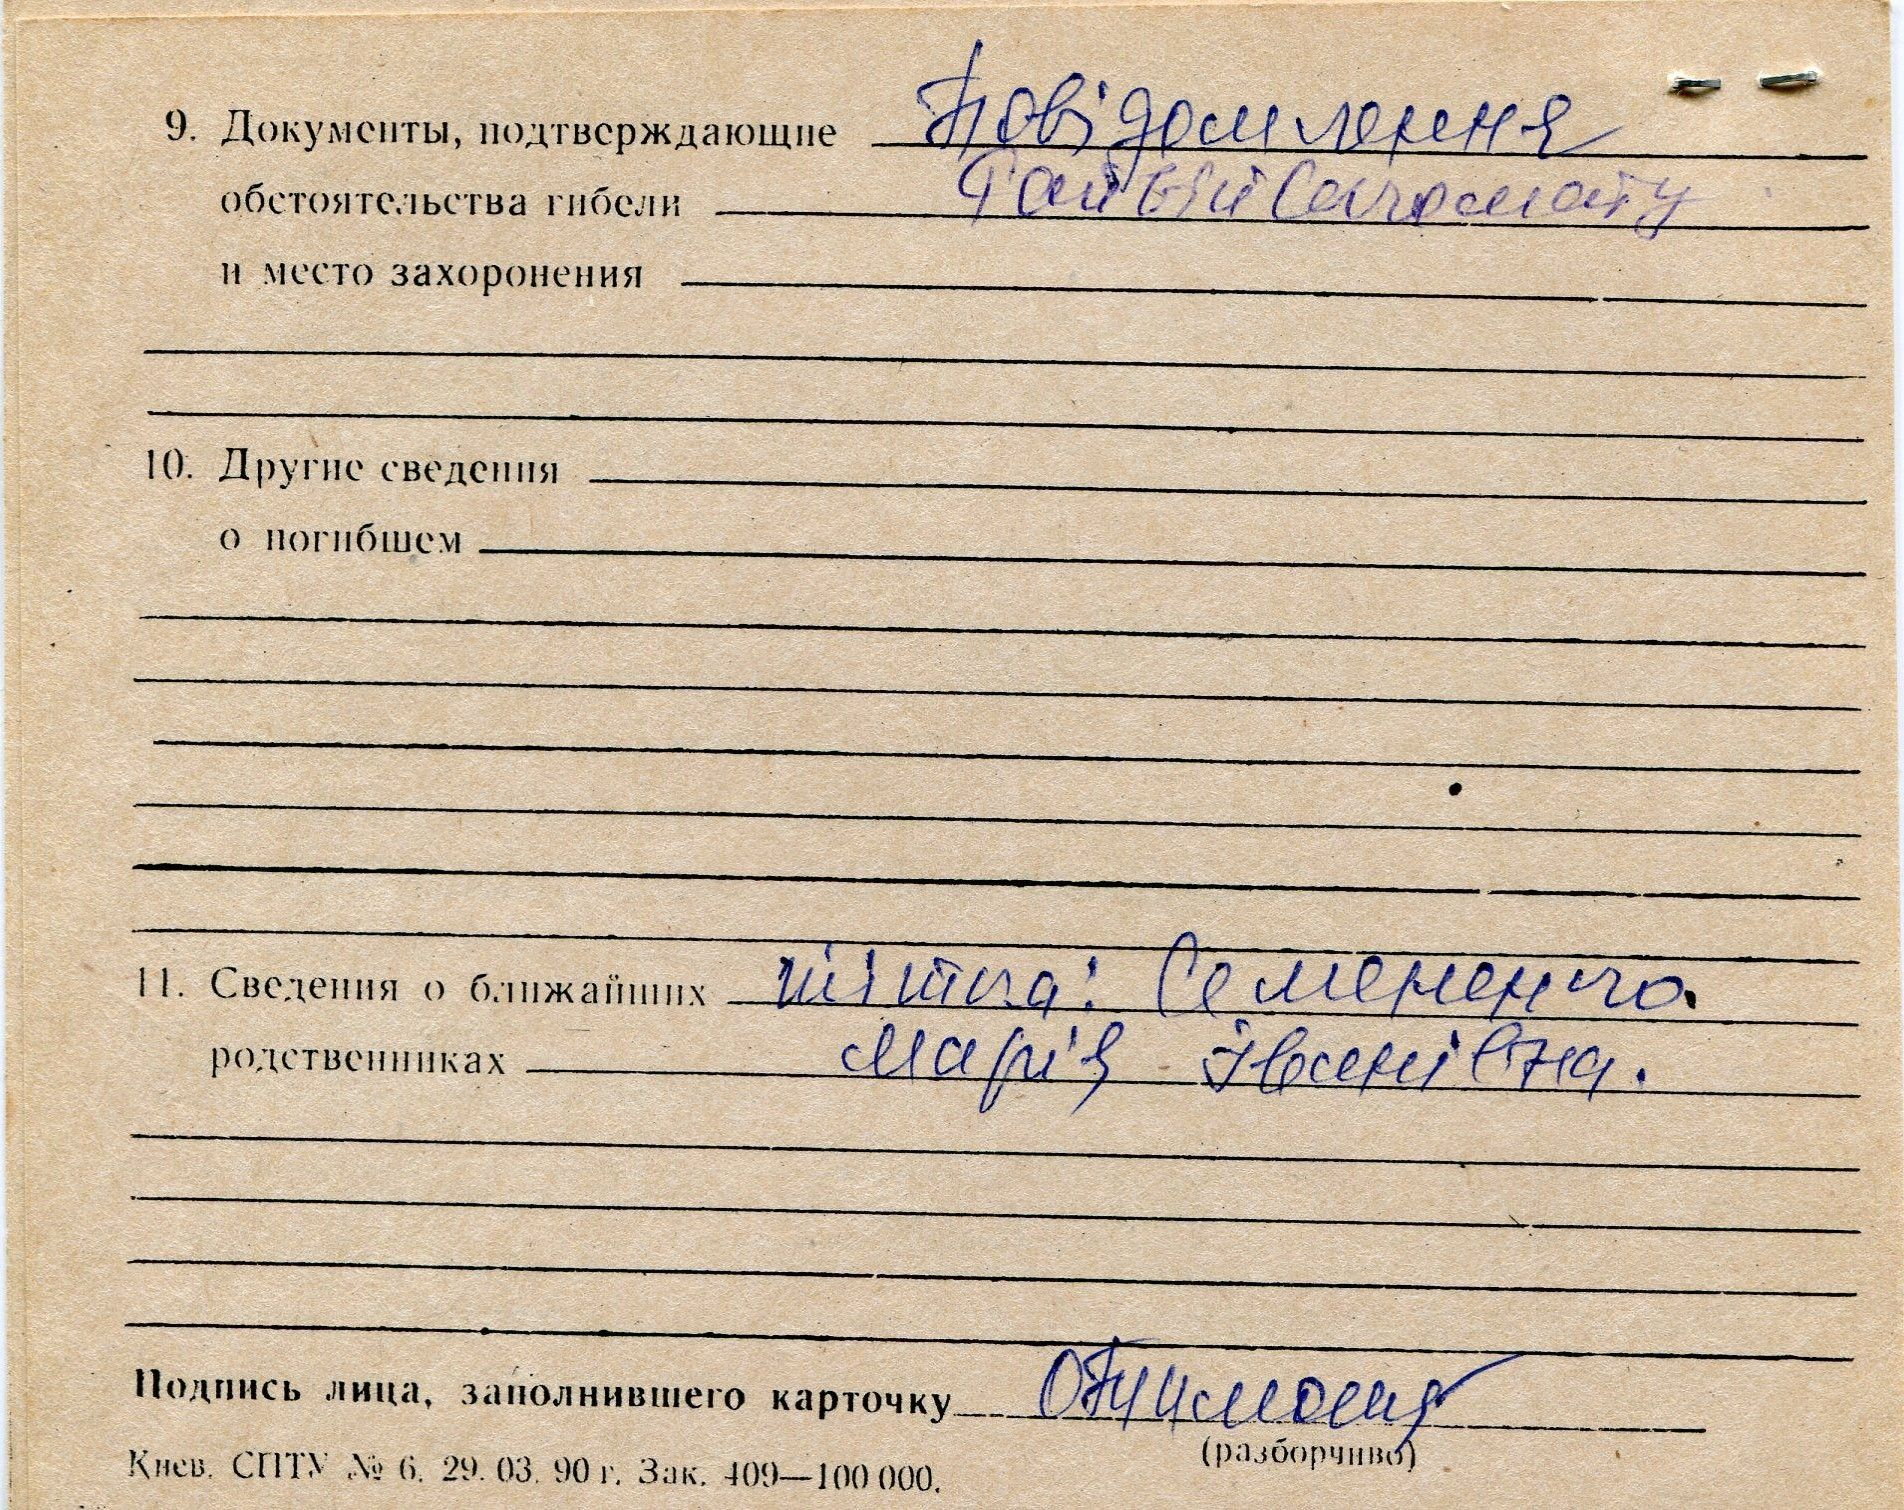 9. Документы, подтверждающие Повідомлення
обстоятельства гибели Райвійськомату
и место захоронения
10. Другие сведения
о погибшем
11. Сведения о ближайших тітка: Семененко
родственниках Марія Іванівна.
Подпись лица, заполнившего карточку
(разборчиво)
Киев. СПТУ № 6. 29. 03. 90 г. Зак. 409—100 000.